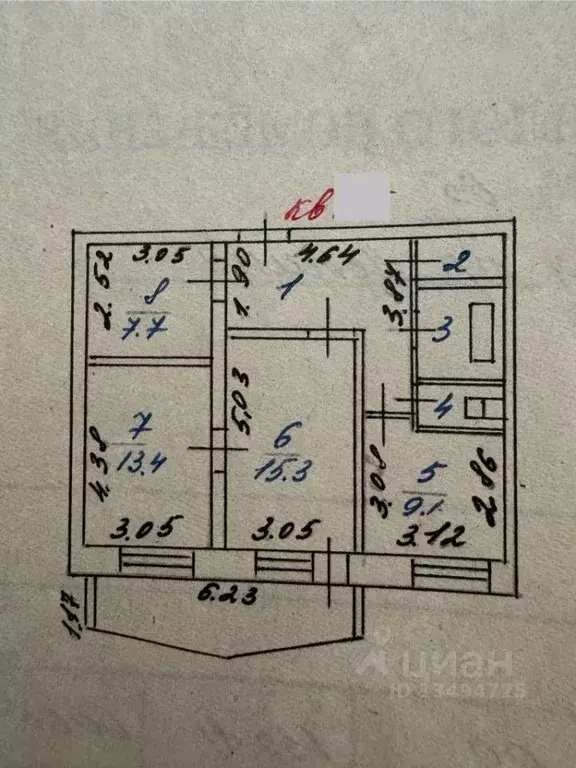 кв.
3.05
4.64
2.52
8
7.7
1.90
1
3.87
2
3
4
5.03
7
13.4
4.38
6
15.3
3.08
5
9.1
2.86
3.05
3.05
3.12
6.23
1.17
циан
ID 33494725